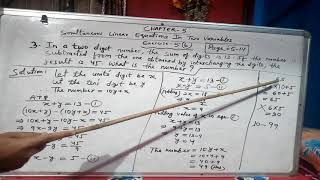 CHAPTER-5
Simultaneous Linear Equations In Two Variables
Exercise-5(b)
Page-5.14
3. In a two digit number, the sum of digits is 13. If the number is
subtracted from the one obtained by interchanging the digits, the
result is 45. What is the number?
Solution: Let the unit's digit be x
and ten's digit be y
The number = 10y+x
A+q
x+y = 13 - ①
(10x+y) - (10y+x) = 45
⇒ 10x+y-10y-x = 45
⇒ 9x-9y = 45
x-y = 5
x+y = 13 - ①
2x = 18
value of x in eqn ①
x+y = 13
⇒ 9+y = 13
⇒ y = 13-9
⇒ y = 4
The number = 10y+x
= 10×4+9
= 40+9
= 49
×10+5
= 60+5
= 65
6×5
= 30
10-99